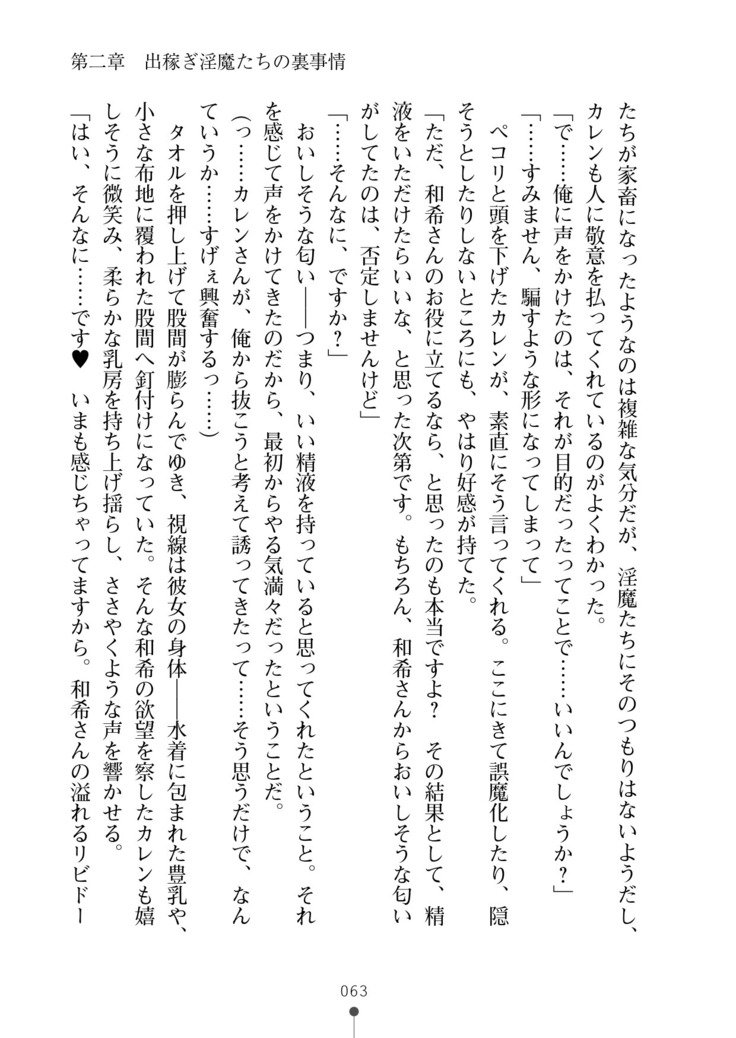 第二章　出稼ぎ淫魔たちの裏事情
たちが家畜になったようなのは複雑な気分だが、淫魔たちにそのつもりはないようだし、
カレンも人に敬意を払ってくれているのがよくわかった。
「で……俺に声をかけたのは、それが目的だったってことで……いいんでしょうか？」
「……すみません、騙すような形になってしまって」
　ペコリと頭を下げたカレンが、素直にそう言ってくれる。ここにきて誤魔化したり、隠
そうとしたりしないところにも、やはり好感が持てた。
「ただ、和希さんのお役に立てるなら、と思ったのも本当ですよ？　その結果として、精
液をいただけたらいいな、と思った次第です。もちろん、和希さんからおいしそうな匂い
がしてたのは、否定しませんけど」
「……そんなに、ですか？」
　おいしそうな匂い――つまり、いい精液を持っていると思ってくれたということ。それ
を感じて声をかけてきたのだから、最初からやる気満々だったということだ。
（っ……カレンさんが、俺から抜こうと考えて誘ってきたって……そう思うだけで、なん
ていうか……すげぇ興奮するっ……）
　タオルを押し上げて股間が膨らんでゆき、視線は彼女の身体――水着に包まれた豊乳や、
小さな布地に覆われた股間へ釘付けになっていた。そんな和希の欲望を察したカレンも嬉
しそうに微笑み、柔らかな乳房を持ち上げ揺らし、ささやくような声を響かせる。
「はい、そんなに……です♥　いまも感じちゃってますから。和希さんの溢れるリビドー
063